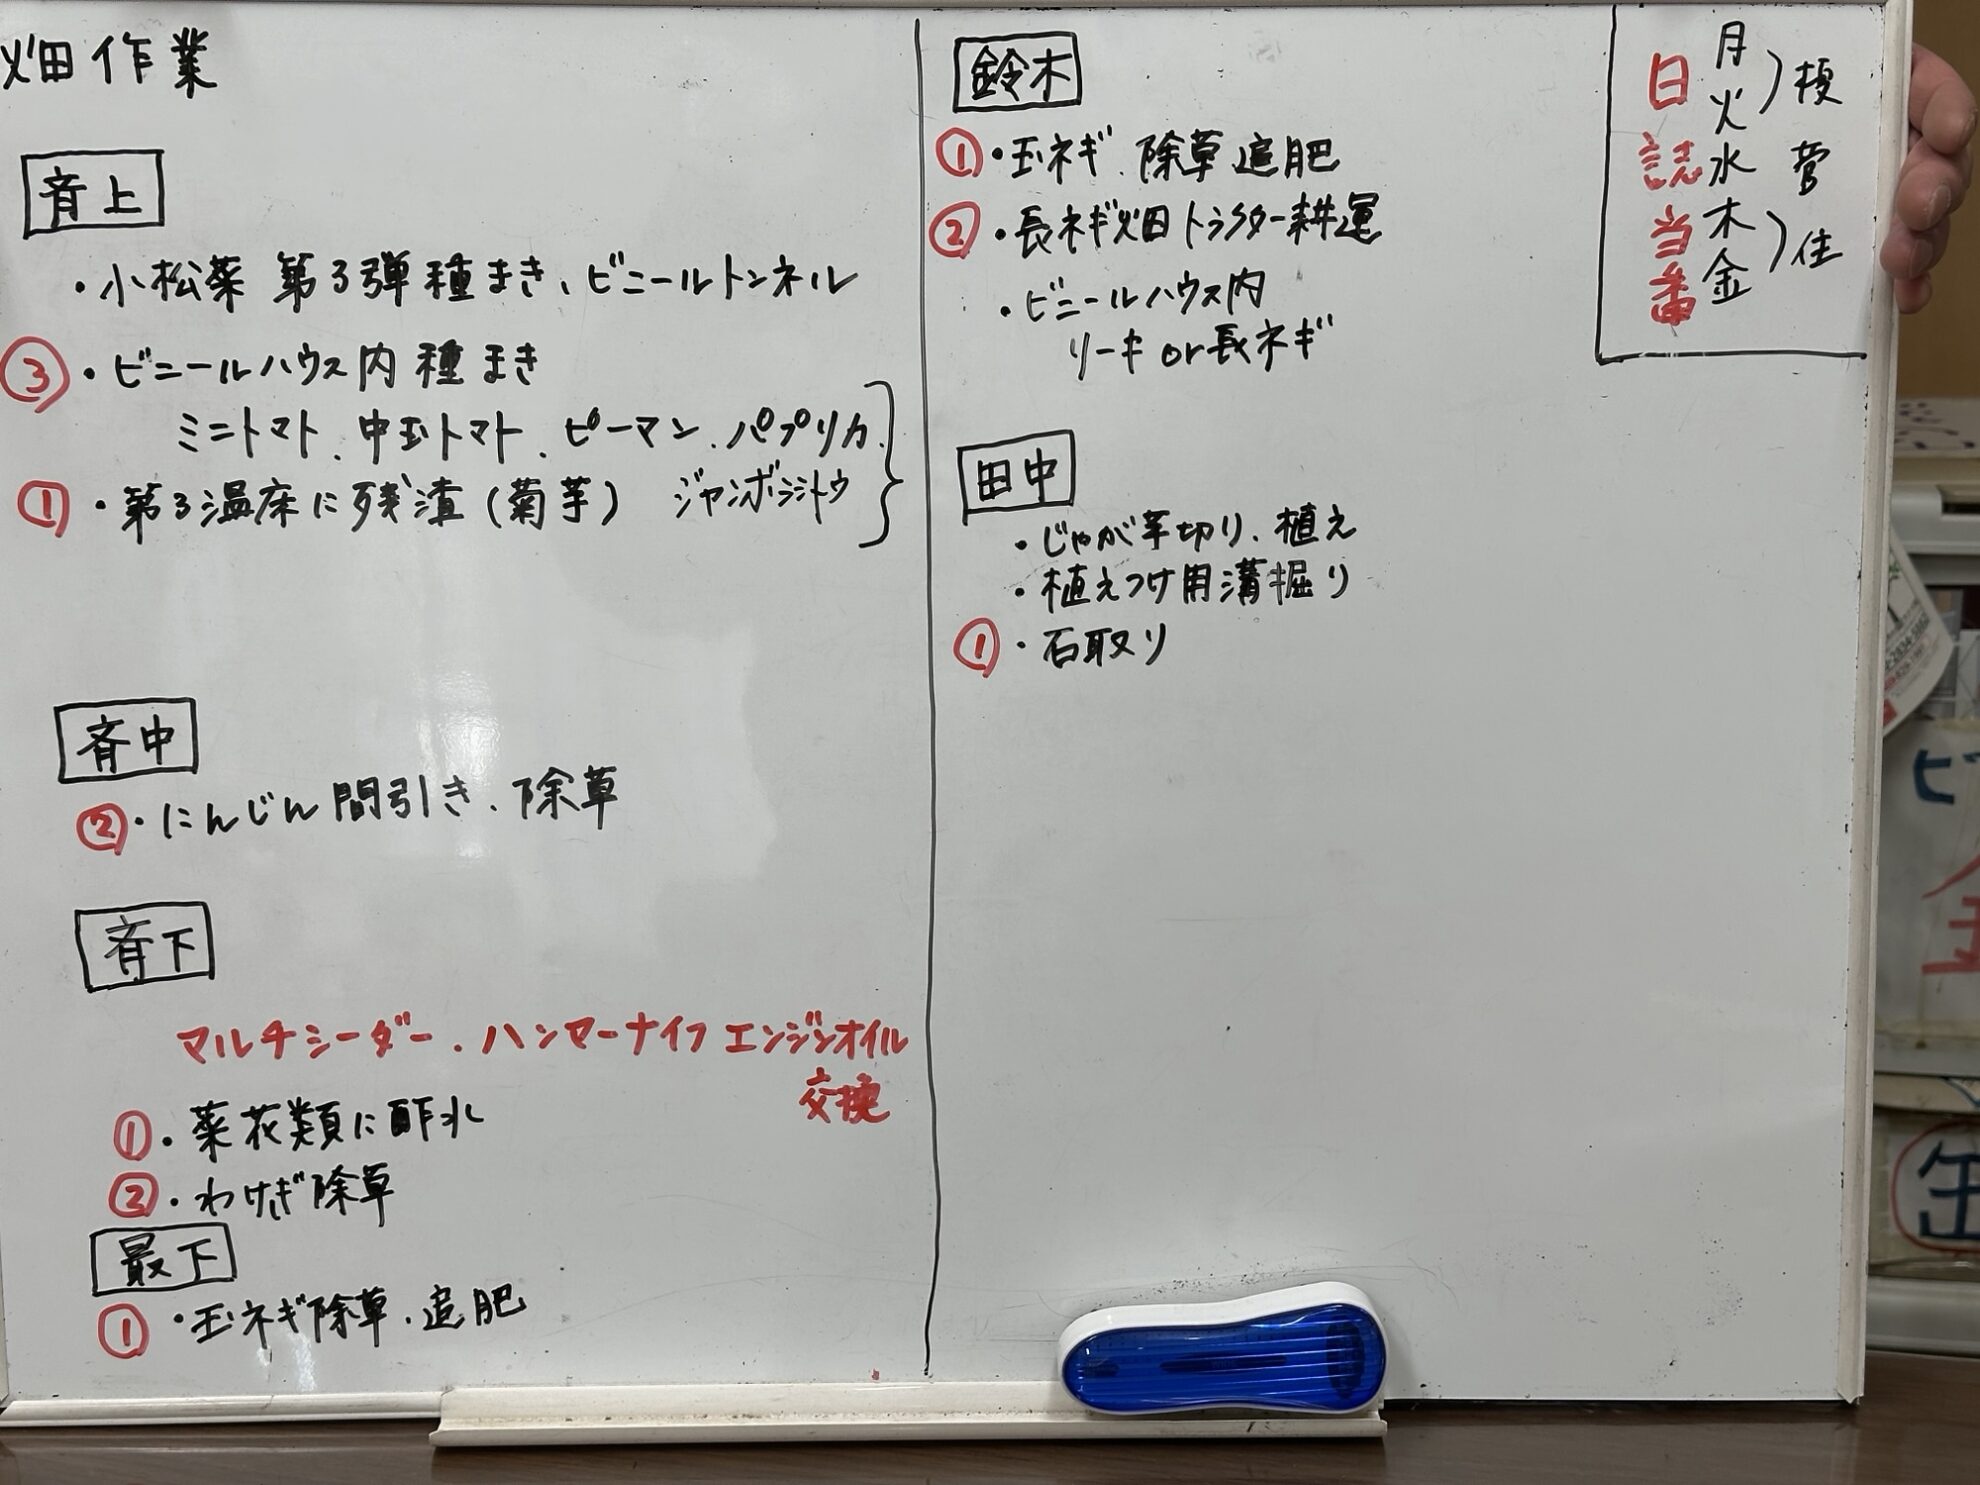 畑作業
斉上
・小松菜 第3弾種まき、ビニールトンネル
③・ビニールハウス内 種まき
ミニトマト、中玉トマト、ピーマン、パプリカ、
ジャンボシシトウ
①・第3温床に残渣(菊芋)
斉中
②・にんじん間引き、除草
斉下
マルチシーダー、ハンマーナイフ エンジンオイル
交換
①・菜花類に酢水
②・わけぎ除草
最下
①・玉ネギ除草、追肥
鈴木
①・玉ネギ、除草追肥
②・長ネギ畑トラクター耕運
・ビニールハウス内
リーキor長ネギ
田中
・じゃが芋切り、植え
・植えつけ用溝掘り
①・石取り
日誌当番
月
火)榎
水 菅
木
金)住